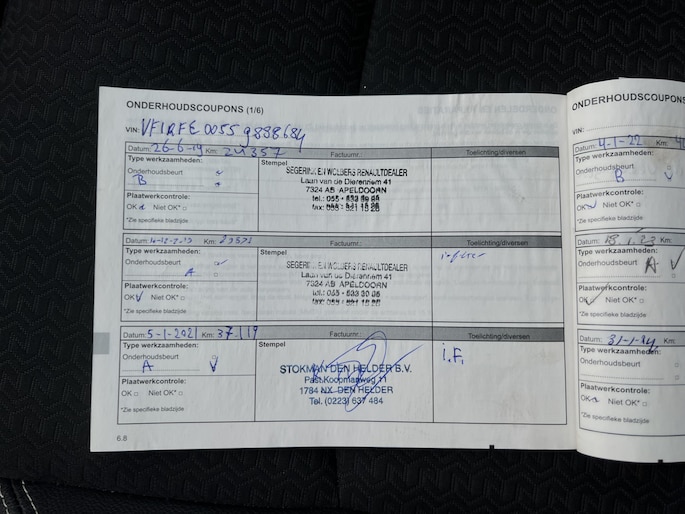 ONDERHOUDSCOUPONS (1/6)
VIN: VF1RFE00559888684
Datum: 26-6-19 Km: 24357 Factuurnr.: Toelichting/diversen
Type werkzaamheden: Stempel
Onderhoudsbeurt
B
Plaatwerkcontrole:
OK Niet OK*
*Zie specifieke bladzijde
SEGERINK EN WOLBERS RENAULTDEALER
Laan van de Dierenriem 41
7324 AB APELDOORN
tel.: 055 -
fax:
Datum: Km: Factuurnr.: Toelichting/diversen
Type werkzaamheden: Stempel
Onderhoudsbeurt
A
Plaatwerkcontrole:
OK V Niet OK*
*Zie specifieke bladzijde
SEGERINK EN WOLBERS RENAULTDEALER
Laan van de Dierenriem 41
7324 AB APELDOORN
tel.: 055 -
fax:
Datum: 5-1-2021 Km: 37119 Factuurnr.: Toelichting/diversen
Type werkzaamheden: Stempel
Onderhoudsbeurt
A V
Plaatwerkcontrole:
OK Niet OK*
*Zie specifieke bladzijde
STOKMAN DEN HELDER B.V.
Past. Koopmanweg 11
1784 NX DEN HELDER
Tel. (0223) 637 484
i.F.
6.8
ONDERHOUDSCOUPONS
VIN:
Datum: 4-1-22
Type werkzaamheden:
Onderhoudsbeurt
B V
Plaatwerkcontrole:
OK Niet OK*
*Zie specifieke bladzijde
Datum: 18.1.23 Km:
Type werkzaamheden:
Onderhoudsbeurt A V
Plaatwerkcontrole:
OK Niet OK*
*Zie specifieke bladzijde
Datum: 31-1-24 Km:
Type werkzaamheden:
Onderhoudsbeurt
Plaatwerkcontrole:
OK Niet OK*
*Zie specifieke bladzijde